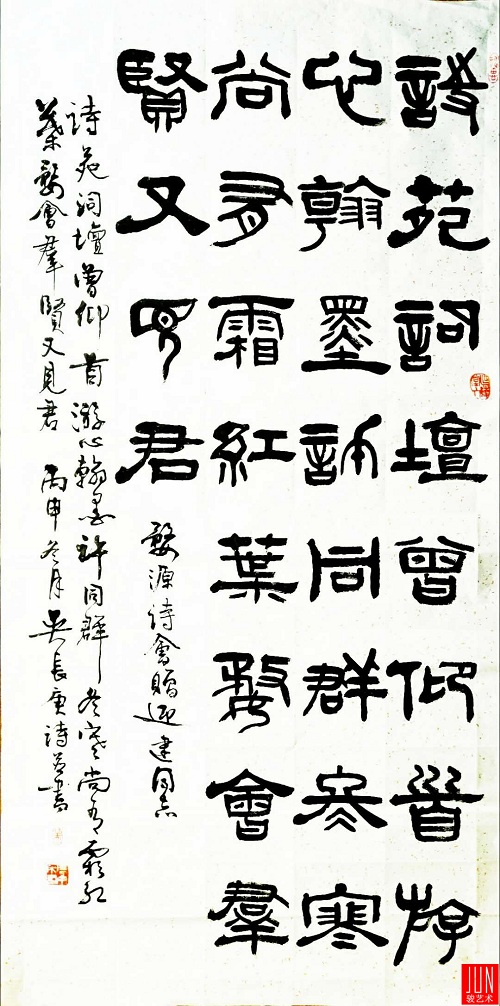 詩苑詞壇曾仰首游
心翰墨許同群冬寒
尚有霜紅葉婺會羣
賢又見君
婺源詩會贈迎建同志
詩苑詞壇曾仰首游心翰墨許同群冬寒尚有霜紅
葉婺會羣賢又見君 丙申冬月吳長庚詩并書
JUN
骏艺术